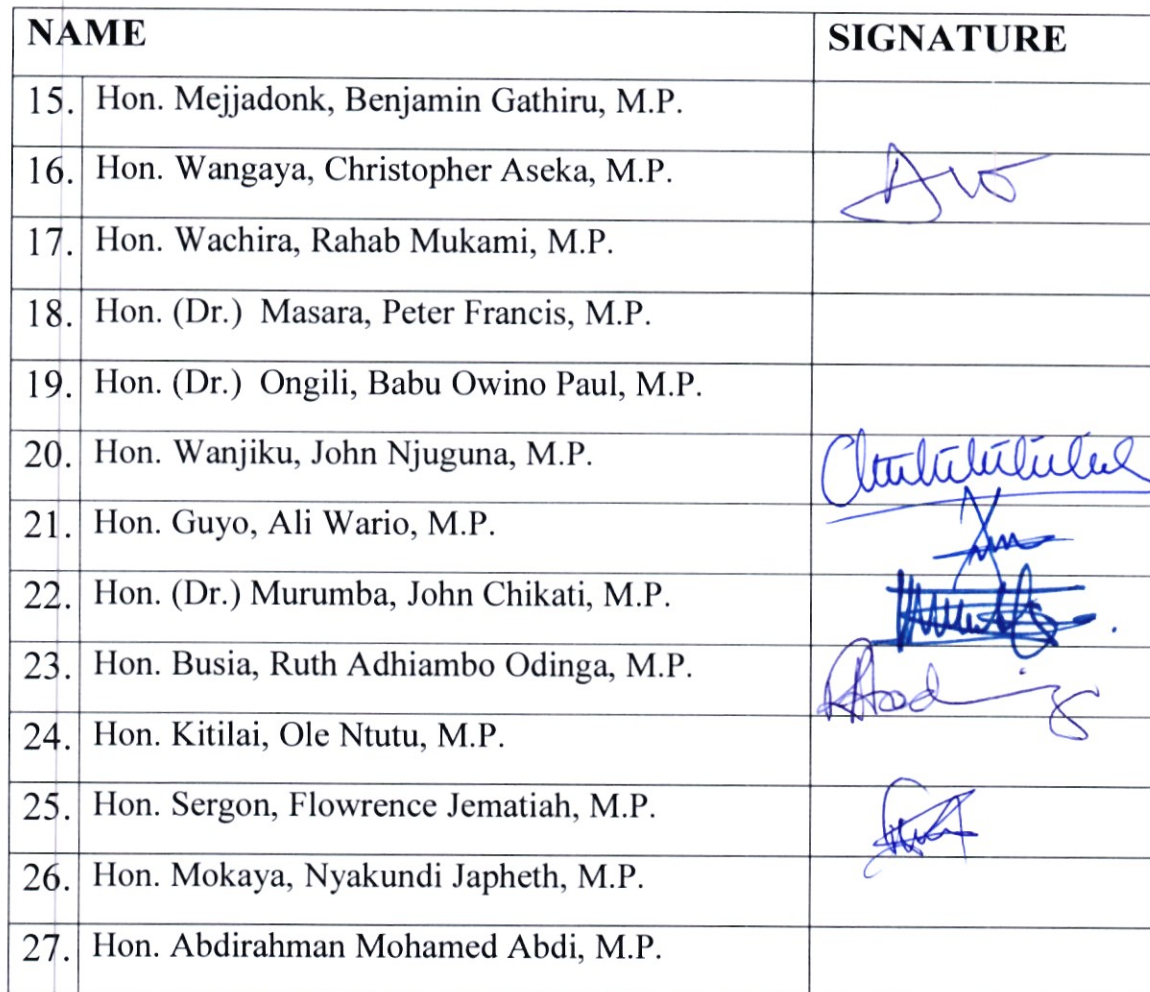 NAME SIGNATURE
15. Hon. Mejjadonk, Benjamin Gathiru, M.P.
16. Hon. Wangaya, Christopher Aseka, M.P.
17. Hon. Wachira, Rahab Mukami, M.P.
18. Hon. (Dr.) Masara, Peter Francis, M.P.
19. Hon. (Dr.) Ongili, Babu Owino Paul, M.P.
20. Hon. Wanjiku, John Njuguna, M.P.
21. Hon. Guyo, Ali Wario, M.P.
22. Hon. (Dr.) Murumba, John Chikati, M.P.
23. Hon. Busia, Ruth Adhiambo Odinga, M.P.
24. Hon. Kitilai, Ole Ntutu, M.P.
25. Hon. Sergon, Flowrence Jematiah, M.P.
26. Hon. Mokaya, Nyakundi Japheth, M.P.
27. Hon. Abdirahman Mohamed Abdi, M.P.